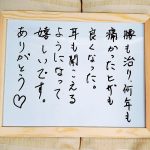 腰も治り、何年も
痛かったヒザも
良くなった。
耳も聞こえる
ようになって
嬉しいです。
ありがとう♡